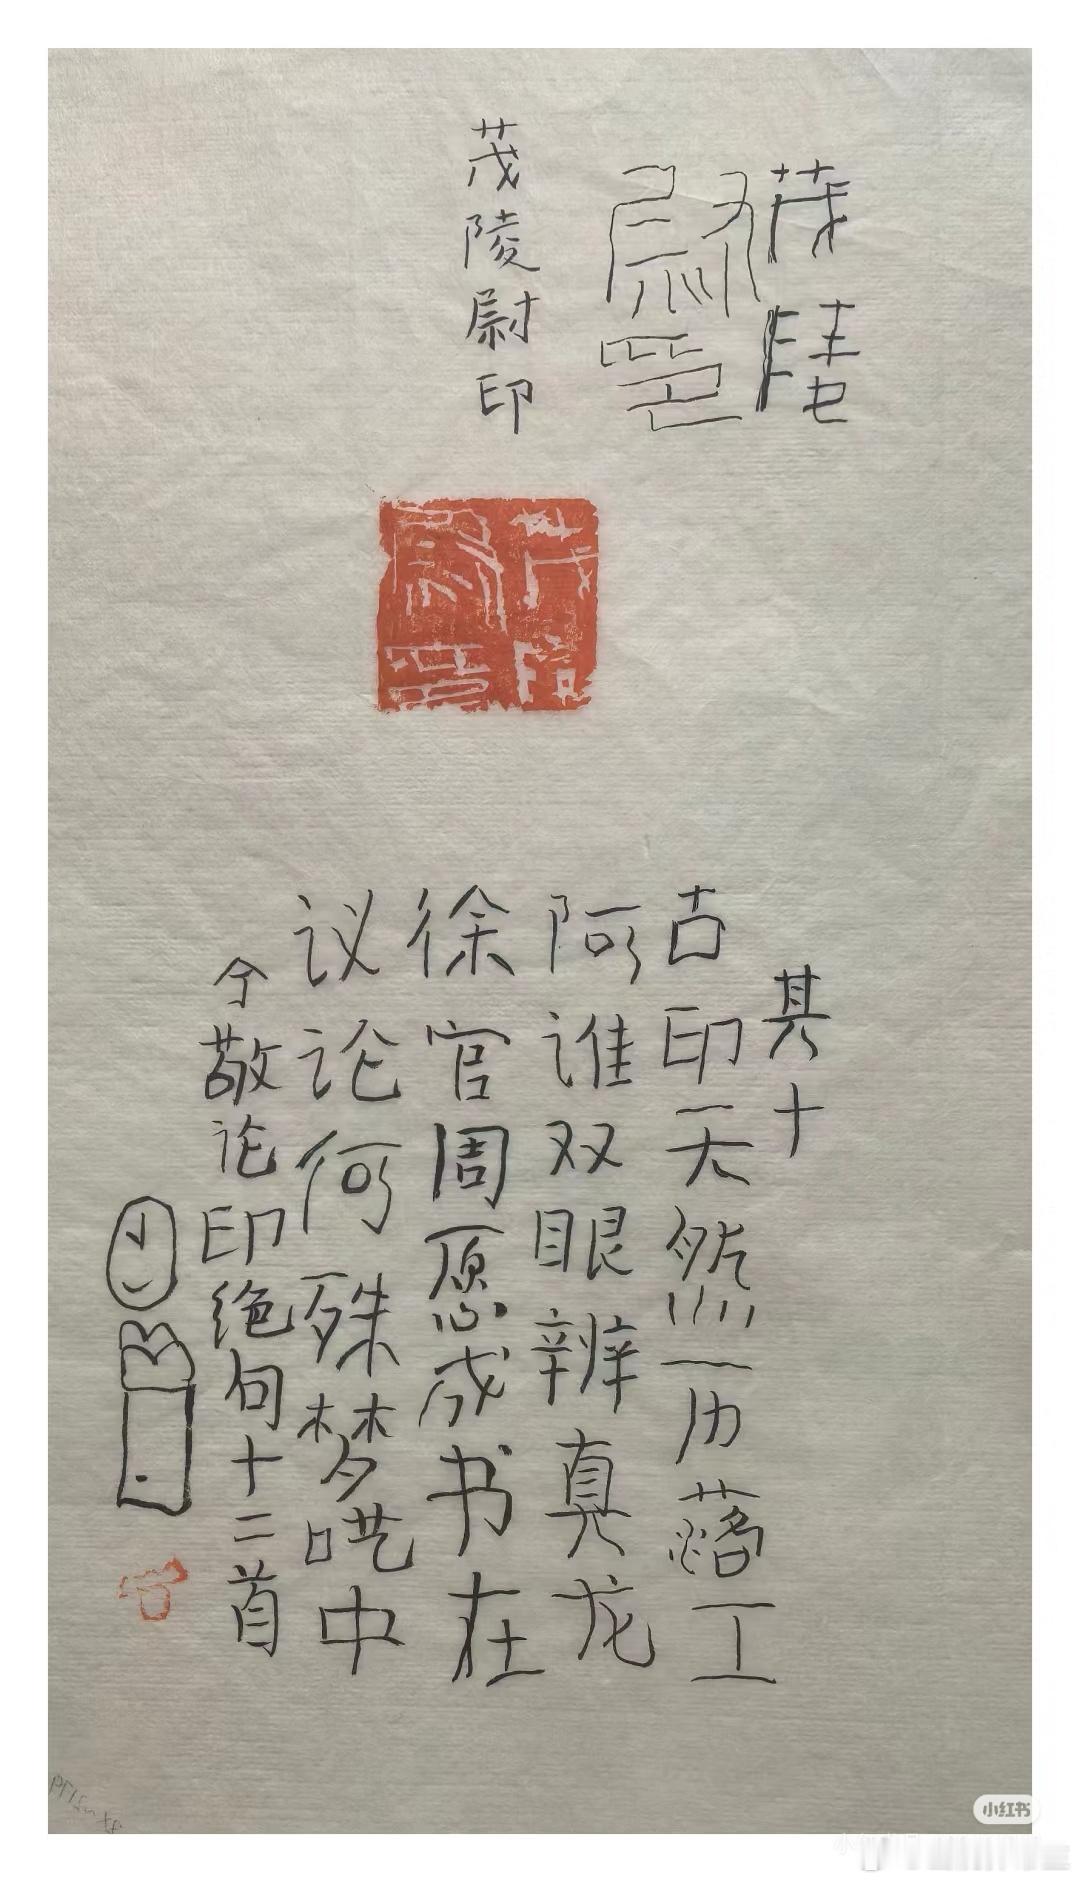 茂陵
尉印
茂陵尉印
茂陵
尉印
其十
古印天然历落工
阿谁双眼辨真龙
徐官周愿成书在
议论何殊梦呓中
今敬论印绝句十二首
小红书